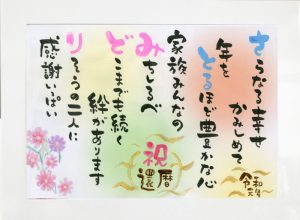 さらなる幸せ
かみしめて
年を
とるほど豊かな心
家族みんなの
みちしるべ
どこまでも続く
絆があります
りそうの二人に
感謝いっぱい
祝
還暦
令和元年